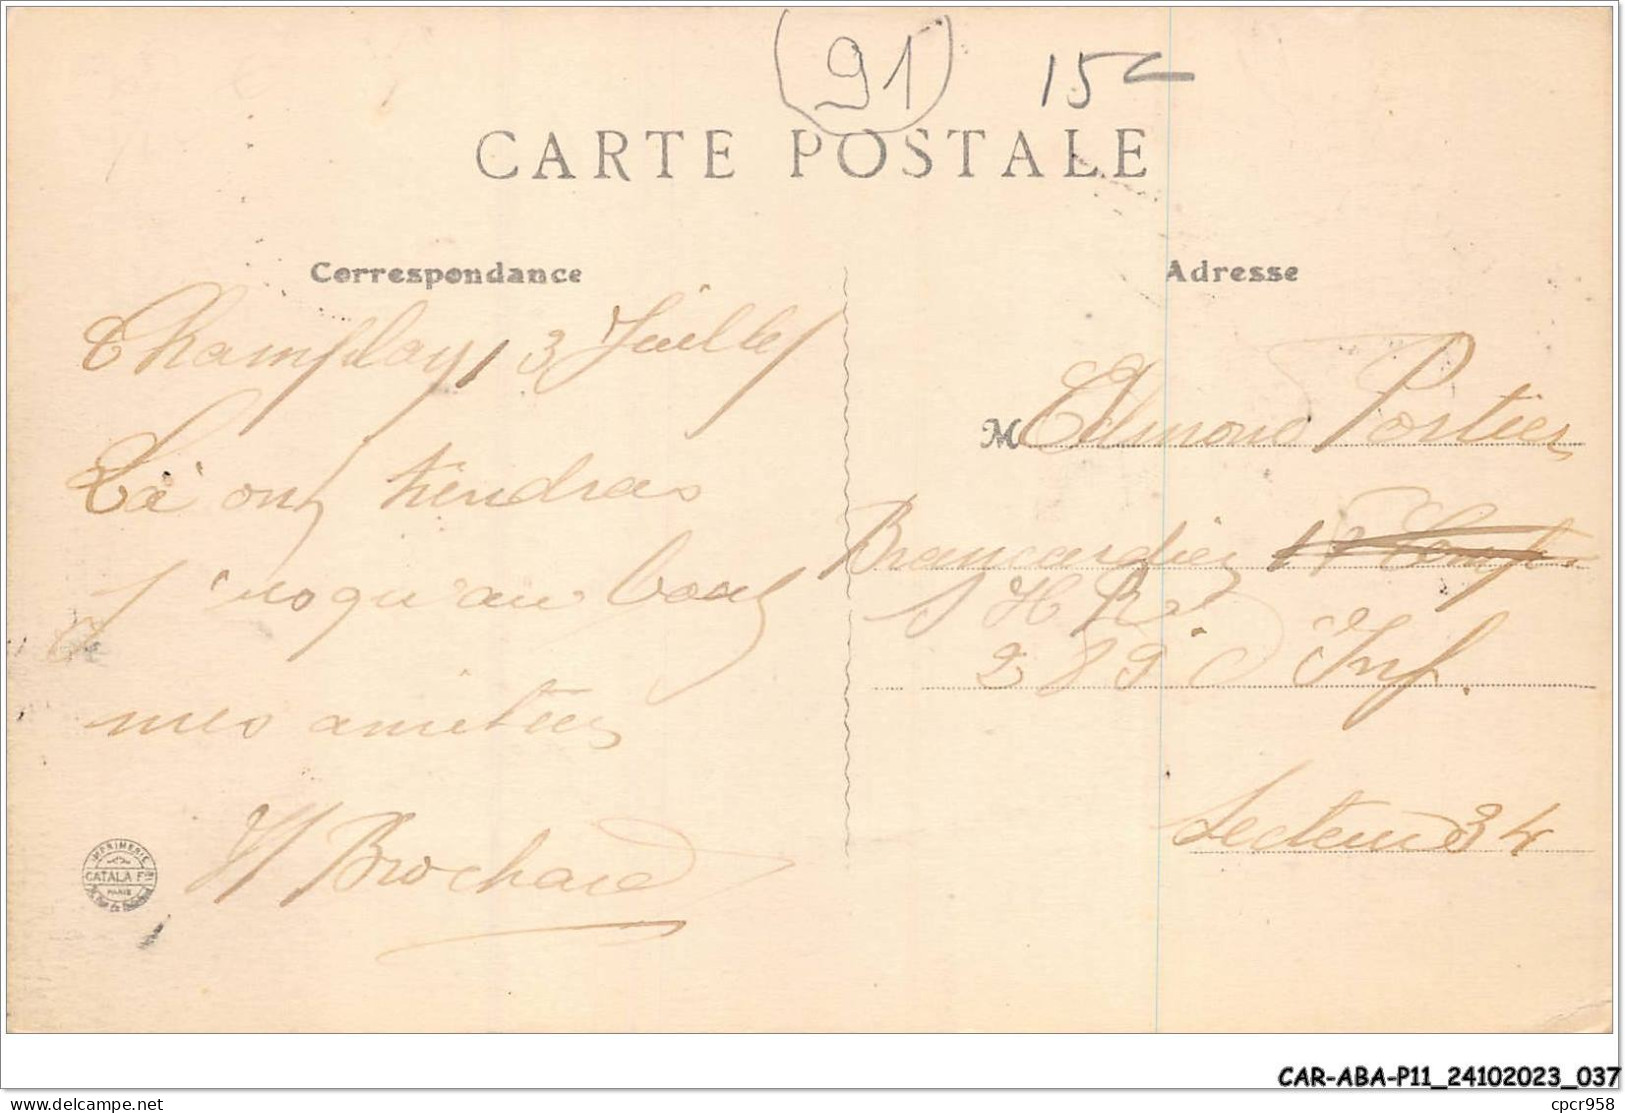 91
15
CARTE POSTALE
Correspondance
Champlay, 3 Juillet
Là ont tiendras
j'usqu'au bout
mes amitiés
H Brochard
IMPRIMERIE
CATALA Frères
PARIS
Adresse
M Edmond Portier
Brancardier
S H R
289e Inf.
Secteur 34
CAR-ABA-P11_24102023_037
delcampe.net
cpcr958